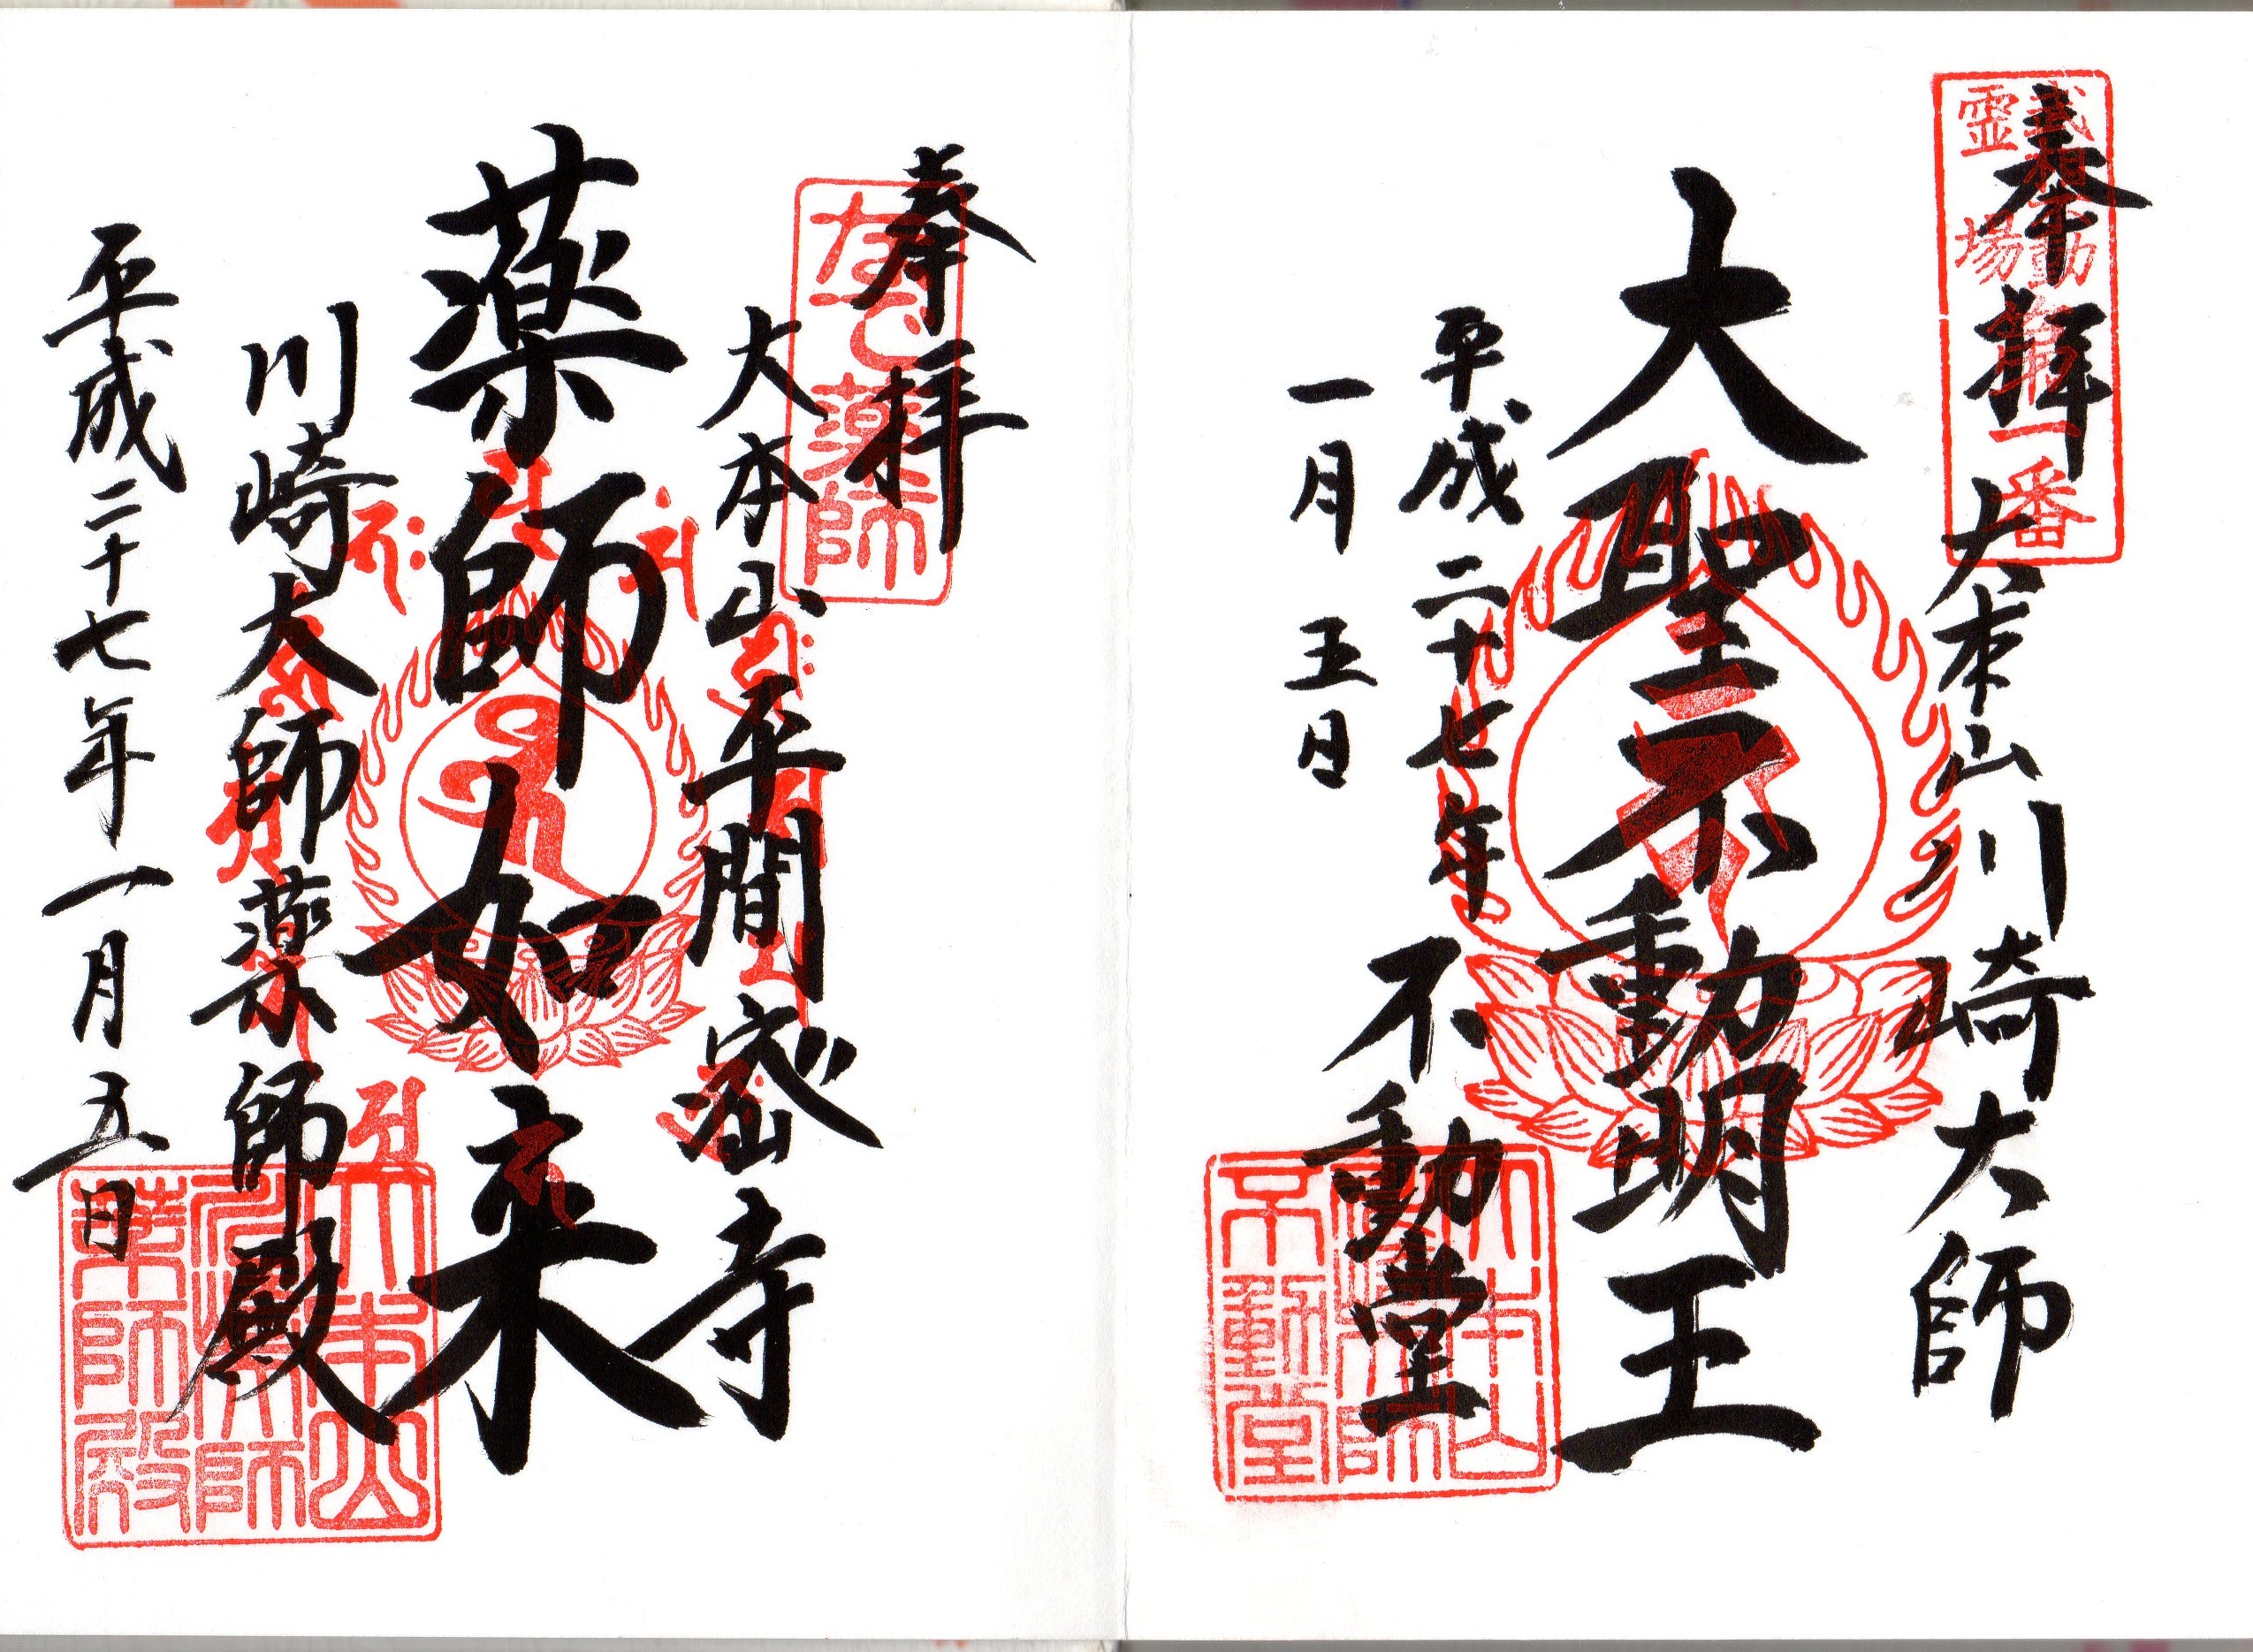 奉拝
武相不動
霊場
第一番
大本山川崎大師
大聖不動明王
平成二十七年
一月五日
不動堂
大本山
川崎大師
不動堂
奉拝
なで薬師
大本山平間密寺
薬師如来
川崎大師薬師殿
平成二十七年一月五日
大本山
川崎大師
薬師殿